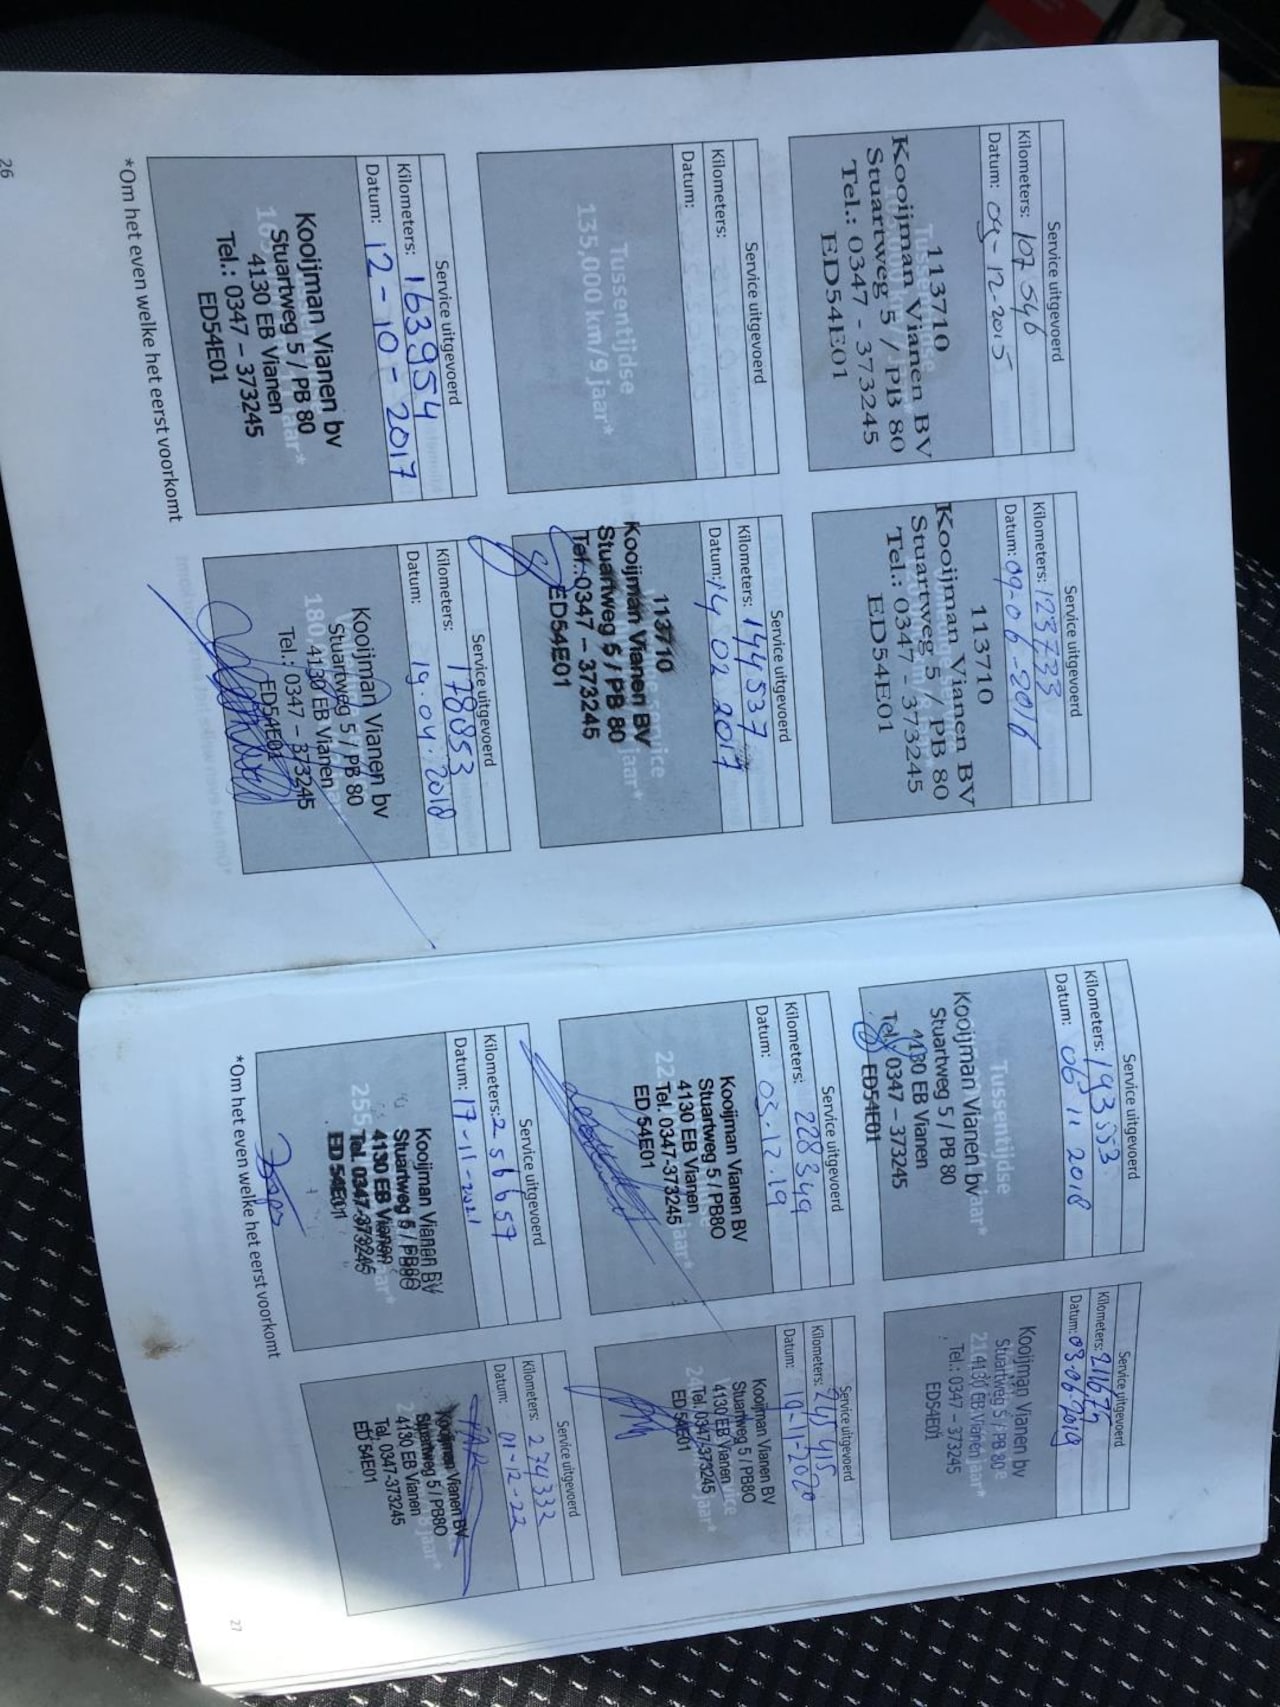 Service uitgevoerd
Kilometers: 107 546
Datum: 09-12-2015
Tussentijdse
113710
Kooijman Vianen BV
Stuartweg 5 / PB 80
Tel.: 0347 - 373245
ED54E01
Service uitgevoerd
Kilometers: 123733
Datum: 09-06-2016
113710
Kooijman Vianen BV
Stuartweg 5 / PB 80
Tel.: 0347 - 373245
ED54E01
Service uitgevoerd
Kilometers:
Datum:
Tussentijdse
135,000 km/9 jaar*
Service uitgevoerd
Kilometers: 144537
Datum: 14 02 2017
113710
Kooijman Vianen BV
Stuartweg 5 / PB 80
Tel.:0347 – 373245
ED54E01
Service uitgevoerd
Kilometers: 163954
Datum: 12-10-2017
Kooijman Vianen bv
Stuartweg 5 / PB 80
4130 EB Vianen
Tel.: 0347 – 373245
ED54E01
Service uitgevoerd
Kilometers: 178053
Datum: 19.04.2018
Kooijman Vianen bv
Stuartweg 5 / PB 80
4130 EB Vianen
Tel.: 0347 – 373245
ED54E01
*Om het even welke het eerst voorkomt
26
Service uitgevoerd
Kilometers: 193553
Datum: 06 11 2018
Tussentijdse
Kooijman Vianen bv
Stuartweg 5 / PB 80
4130 EB Vianen
Tel.: 0347 – 373245
ED54E01
Service uitgevoerd
Kilometers: 211677
Datum: 03-06-2019
Kooijman Vianen bv
Stuartweg 5 / PB 80
4130 EB Vianen
Tel.: 0347 – 373245
ED54E01
Service uitgevoerd
Kilometers: 228349
Datum: 03.12.19
Kooijman Vianen BV
Stuartweg 5 / PB80
4130 EB Vianen
Tel. 0347-373245
ED 54E01
Service uitgevoerd
Kilometers: 245415
Datum: 19-11-2020
Kooijman Vianen BV
Stuartweg 5 / PB80
4130 EB Vianen
Tel. 0347-373245
ED 54E01
Service uitgevoerd
Kilometers: 256657
Datum: 17-11-2021
Kooijman Vianen BV
Stuartweg 5 / PB80
4130 EB Vianen
Tel. 0347-373245
ED 54E01
Service uitgevoerd
Kilometers: 274332
Datum: 01-12-22
Kooijman Vianen BV
Stuartweg 5 / PB80
4130 EB Vianen
Tel. 0347-373245
ED 54E01
*Om het even welke het eerst voorkomt
27